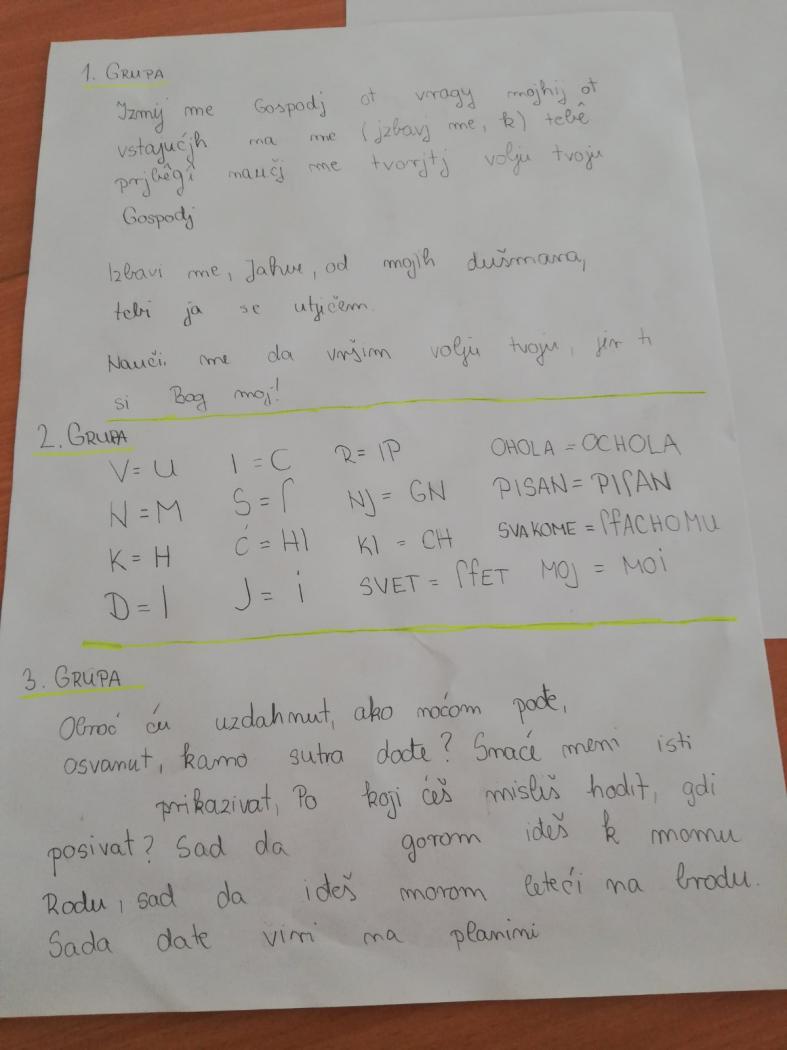 1. GRUPA
Izmij me Gospodj ot vragy mojhij ot
vstajućjh na me (jzbavj me, k) tebê
prjbêgì naučj me tvorjtj volju tvoju
Gospodj
Izbavi me, Jahve, od mojih dušmana,
tebi ja se utječem.
Nauči me da vršim volju tvoju, jer ti
si Bog moj!
2. GRUPA
V= U I = C R= IP OHOLA = OCHOLA
N = M S = ſ NJ = GN PISAN= PIſAN
K = H Ć = HI KI = CH SVAKOME = ſfACHOMU
D = I J = i SVET = ſfET MOJ = MOi
3. GRUPA
Obroć ću uzdahnut, ako noćom pođe,
osvanut, kamo sutra dođe? Smaće meni isti
prikazivat, Po koji ćeš misliš hodit, gdi
posivat? Sad da gorom ideš k momu
Rodu, sad da ideš morom leteći na brodu.
Sada date vini na planini